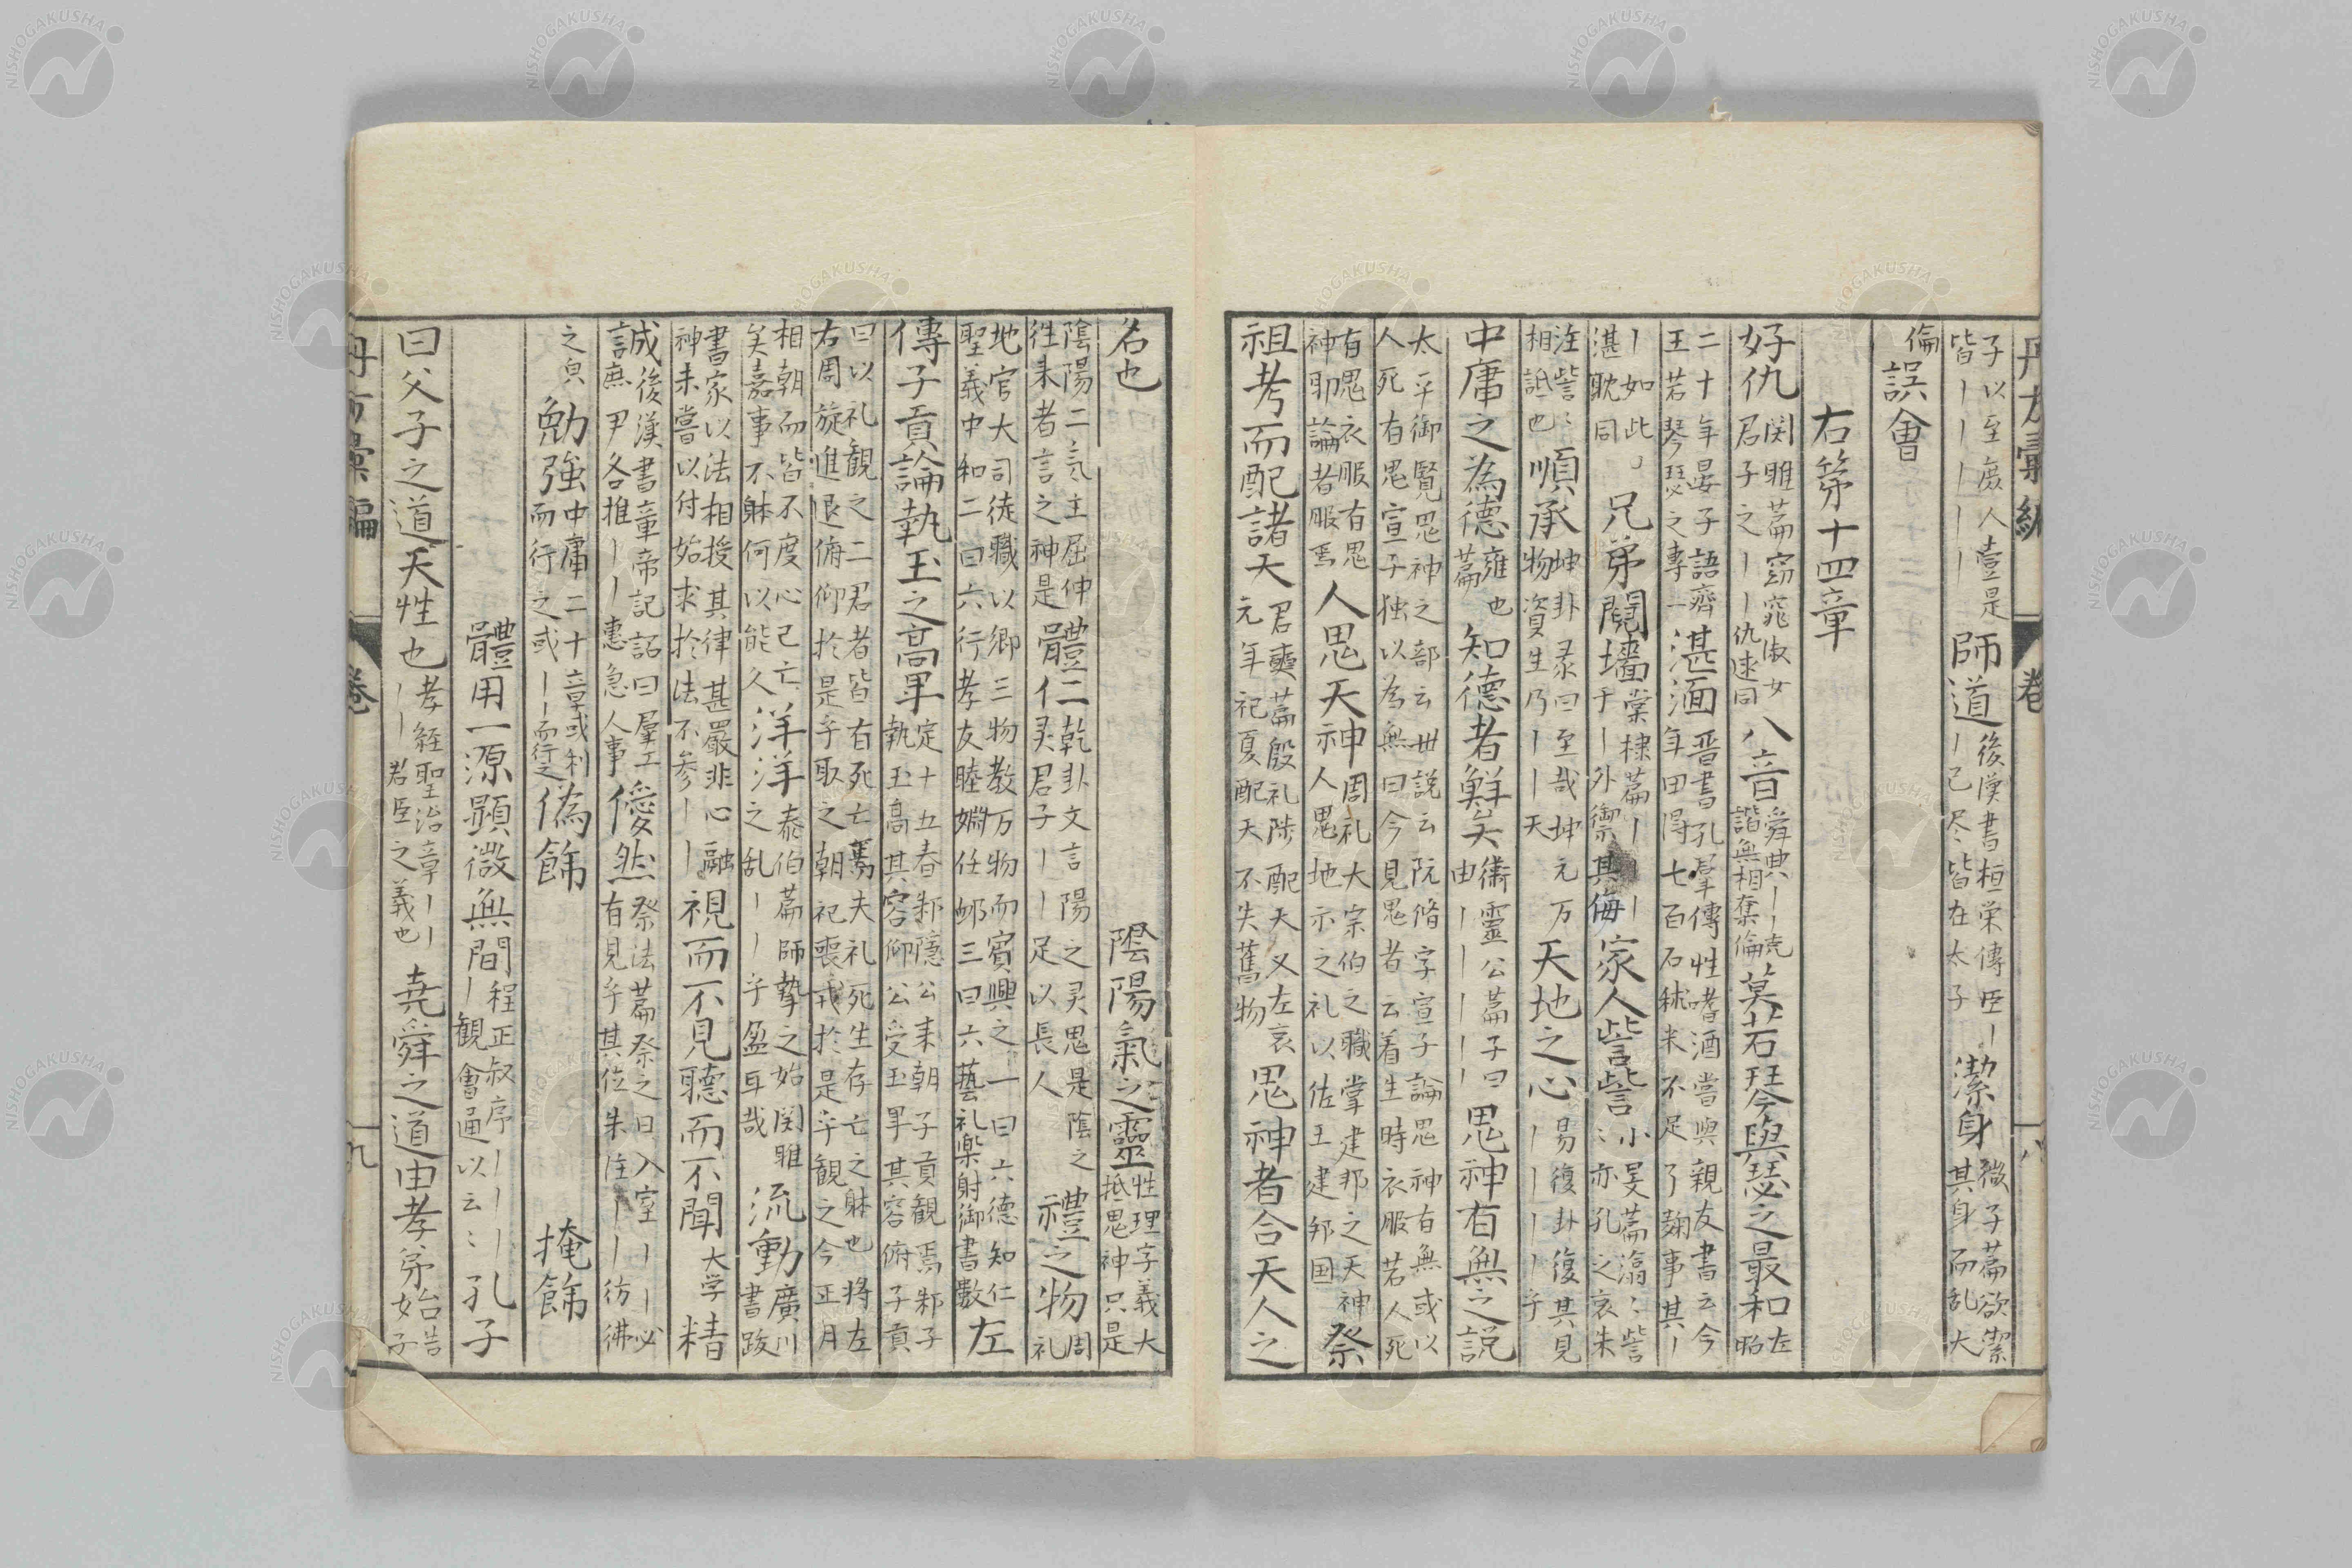 丹方彙編　卷　八
子以至庶人壹是皆｜｜｜｜｜｜師道後漢書桓栄傳臣｜｜已尽皆在太子潔身微子篇欲潔其身而乱大
倫誤會
右第十四章
好仇関雎篇窈窕淑女君子之｜｜仇逑同八音舜典｜｜克諧無相奪倫莫若琴與瑟之最和左昭
二十年晏子語齊王若琴瑟之專一湛湎晋書孔羣傳性嗜酒嘗與親友書云今年田得七百石秫米不足了麹事其｜
｜如此湛耽同兄弟鬩墻棠棣篇｜｜于｜外禦其侮家人訾訾小旻篇潝〻訾〻亦孔之哀朱
注訾〻相詆也順承坤卦彖曰至哉坤元万物資生乃｜｜天天地之心易復卦復其見｜｜｜｜乎
中庸之為德雍也篇知德者鮮矣衛靈公篇子曰由｜｜｜｜鬼神有無之説
太平御覧鬼神之部云世説云阮脩字宣子論鬼神有無或以人死有鬼宣子独以為無曰今見鬼者云着生時衣服若人死
有鬼衣服有鬼神耶論者服焉人鬼天神周礼大宗伯之職掌建邦之天神人鬼地示之礼以佐王建邦国祭
祖考而配諸天君奭篇殷礼陟配天又左哀元年祀夏配天不失舊物鬼神者合天人之
名也　陰陽氣之靈性理字義大抵鬼神只是
陰陽二氣主屈伸往来者言之神是體仁乾卦文言陽之灵鬼是陰之灵君子｜｜足以長人禮之物周礼
地官大司徒職以郷三物教万物而賓興之一曰六德知仁聖義中和二曰六行孝友睦婣任䘏三曰六藝礼楽射御書數左
傳子貢論執玉之高卑定十五春邾隠公来朝子貢観焉邾子執玉高其容仰公受玉卑其容俯子貢
曰以礼観之二君者皆有死亡焉夫礼死生存亡之躰也将左右周旋進退俯仰於是乎取之朝祀喪戎於是乎観之今正月
相朝而皆不度心已亡矣嘉事不躰何以能久洋洋泰伯篇師摯之始関雎之乱｜｜乎盈耳哉流動廣川書跋
書家以法相授其律甚嚴非心融神未嘗以付始求於法不参｜｜視而不見聽而不聞大学精
誠後漢書章帝記詔曰羣工庶尹各推｜｜恵急人事僾然祭法篇祭之日入室｜｜必有見乎其位朱注｜｜彷彿
之皃勉強中庸二十章或利而行之或｜｜而行之偽飾　掩飾
體用一源顕微無間程正叔序｜｜｜｜観會通以云〻孔子
曰父子之道天性也孝経聖治章｜｜｜｜君臣之義也堯舜之道由孝弟始告子
丹方彙編　卷　九
NISHOGAKUSHA